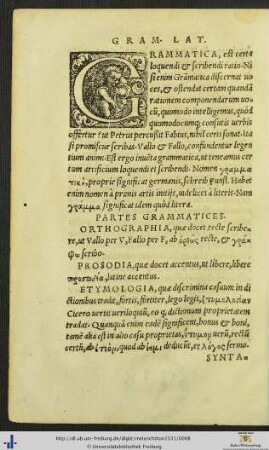 GRAM. LAT.
GRAMMATICA, est certa
loquendi & scribendi ratio. Ni
si enim Grãmatica discernat uo
ces, & ostendat certam quandã
rationem componendarum uo
cũ, quomodo intelligemus, quòd
quomodocunq; consutis uerbis
offertur? ut Petrus percussit Fabius, nihil certi sonat. Ita
si promiscue scribas Vallo & Fallo, confundentur legen
tium animi. Est ergo inuẽta grammatica, ut teneamus cer
tum artificium loquendi et scribendi. Nomen γραμμα
τικὴ, propriè significat germanis, schreib Kunst. Habet
enim nomen à primis artis initijs, uidelicet à literis. Nam
γράμμα significat idem quòd litera.
PARTES GRAMMATICES.
ORTHOGRAPHIA, quæ docet recte scribe
re, ut Vallo per V, Fallo per F, ab ὀρθῶς recte, & γρά
φω scribo.
PROSODIA, quæ docet accentus, ut libere, libere
προσῳδία, latine accentus.
ETYMOLOGIA, quæ discrimina casuum in di
ctionibus tradit, fortis, fortiter, lego legis, ἐτυμολογίαν
Cicero uertit ueriloquiũ, eo q, dictionum proprietatem
tradat. Quanquã enim eadẽ significent, bonus & boni,
tamẽ alia est in alio casu proprietas, ἔτυμον uerũ, rectũ
certũ, ab ἔτεόν, quod ab εἰμὶ deducũt, et λόγος sermo.
SYNTA=
http://dl.ub.uni-freiburg.de/diglit/melanchthon1531/0008
© Universitätsbibliothek Freiburg